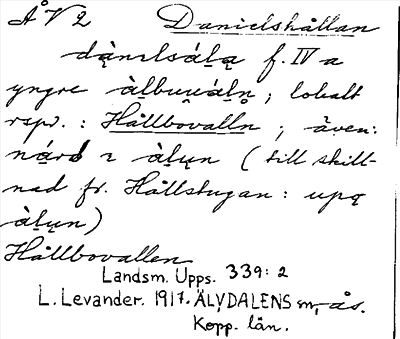 ÅV 2 Danielshållan
dạ̀nɛlsáḷa f. IV a
yngre àlbuváḷn; lokalt
rspr.: Hållbovalln; även:
nárd i àḷu̧n (till skill-
nad fr. Hållstugan: upo̧
àḷu̧n)
Hållbovallen
Landsm. Upps. 339: 2
L. Levander. 1917. ÄLVDALENS sn, ås.
Kopp. län.